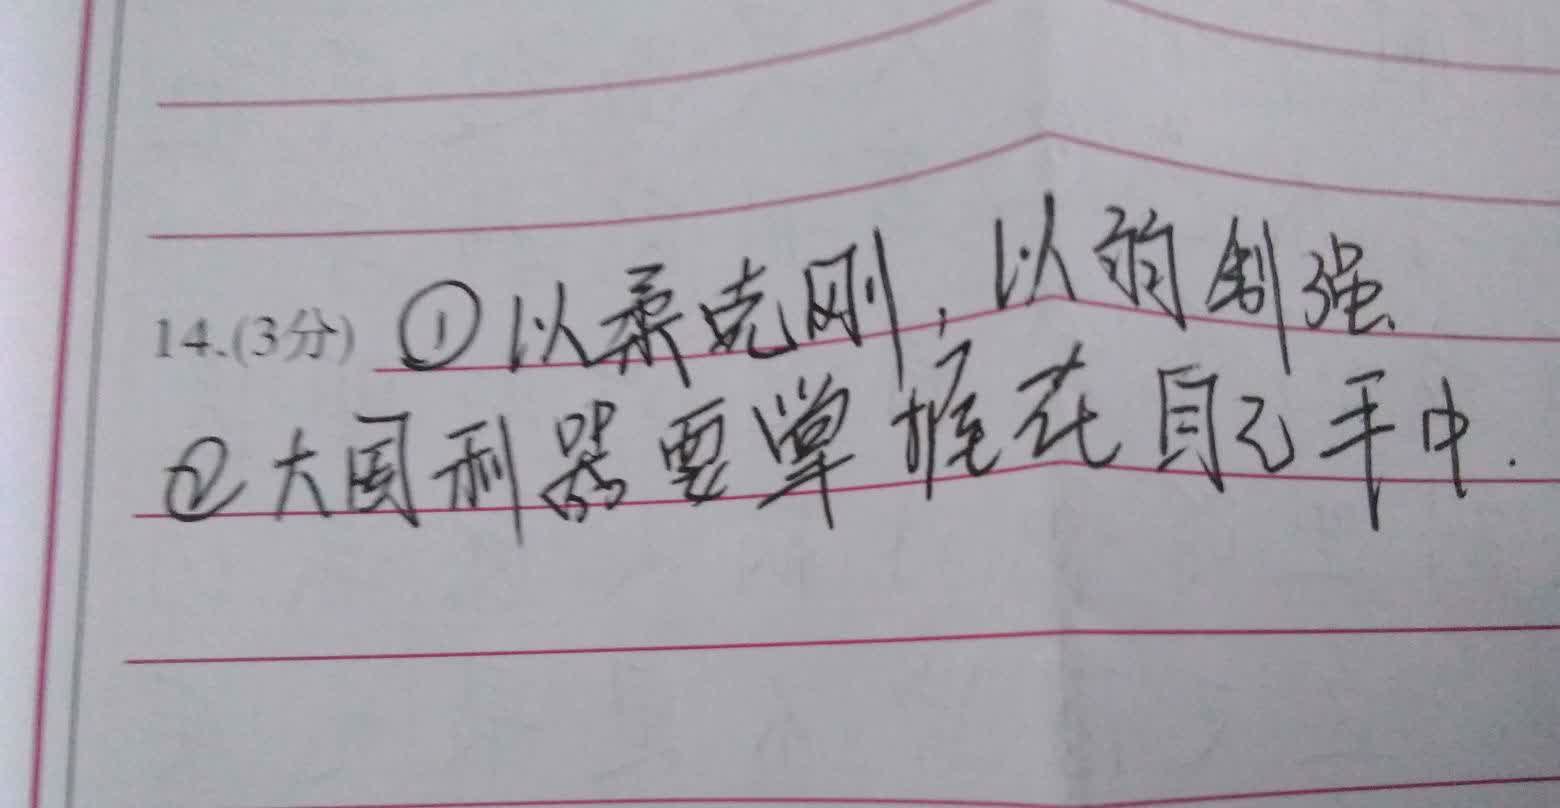 14.(3分) ①以柔克刚,以弱制强.
②大国利器要掌握在自己手中.